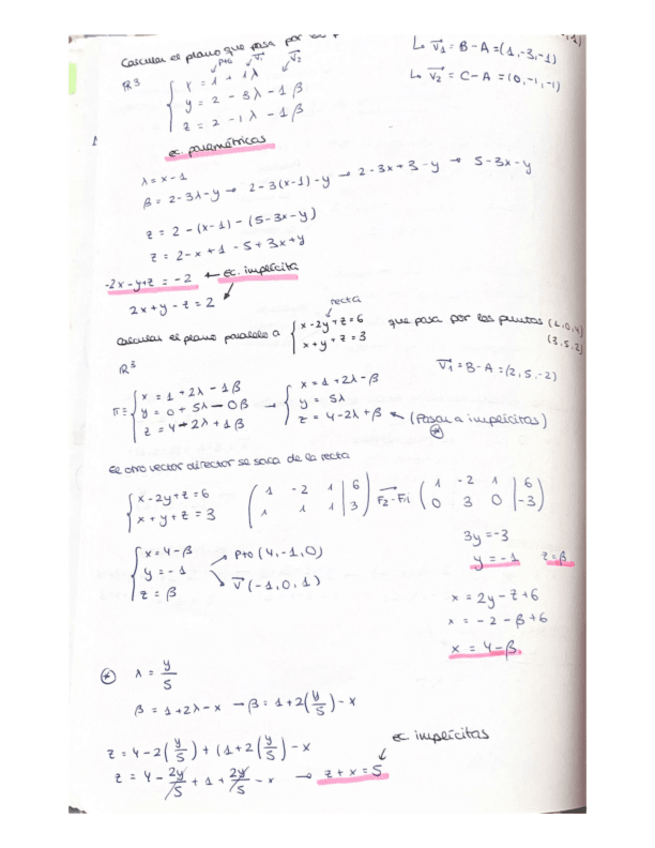 Calcular el plano que pasa por los
↳ V₁ = B - A = (1, -3, -1)
↳ V₂ = C - A = (0, -1, -1)
Pto V₁ V₂
ℝ³
x = 1 + 1λ
y = 2 - 3λ - 1β
z = 2 - 1λ - 1β
ec. paramétricas
λ = x - 1
β = 2 - 3λ - y → 2 - 3(x-1) - y → 2 - 3x + 3 - y → 5 - 3x - y
z = 2 - (x-1) - (5 - 3x - y)
z = 2 - x + 1 - 5 + 3x + y
-2x - y + z = -2 ← ec. implícita
2x + y - z = 2
recta
Calcular el plano paralelo a { x - 2y + z = 6 que pasa por los puntos (1,0,4)
x + y + z = 3 (3,5,2)
ℝ³
V₁ = B - A = (2, 5, -2)
π ≡ { x = 1 + 2λ - 1β → { x = 1 + 2λ - β
y = 0 + 5λ - 0β y = 5λ
z = 4 - 2λ + 1β z = 4 - 2λ + β ← (Pasar a implícitas)
⊛
El otro vector director se saca de la recta
{ x - 2y + z = 6 ( 1 -2 1 | 6 ) → ( 1 -2 1 | 6 )
x + y + z = 3 ( 1 1 1 | 3 ) F₂ - F₁ ( 0 3 0 | -3 )
3y = -3
y = -1 z = β
{ x = 4 - β
y = -1
z = β
Pto (4, -1, 0)
V (-1, 0, 1)
x = 2y - z + 6
x = -2 - β + 6
x = 4 - β
⊛ λ = y/5
β = 1 + 2λ - x → β = 1 + 2(y/5) - x
z = 4 - 2(y/5) + (1 + 2(y/5) - x
ec. implícitas
z = 4 - 2y/5 + 1 + 2y/5 - x → z + x = 5